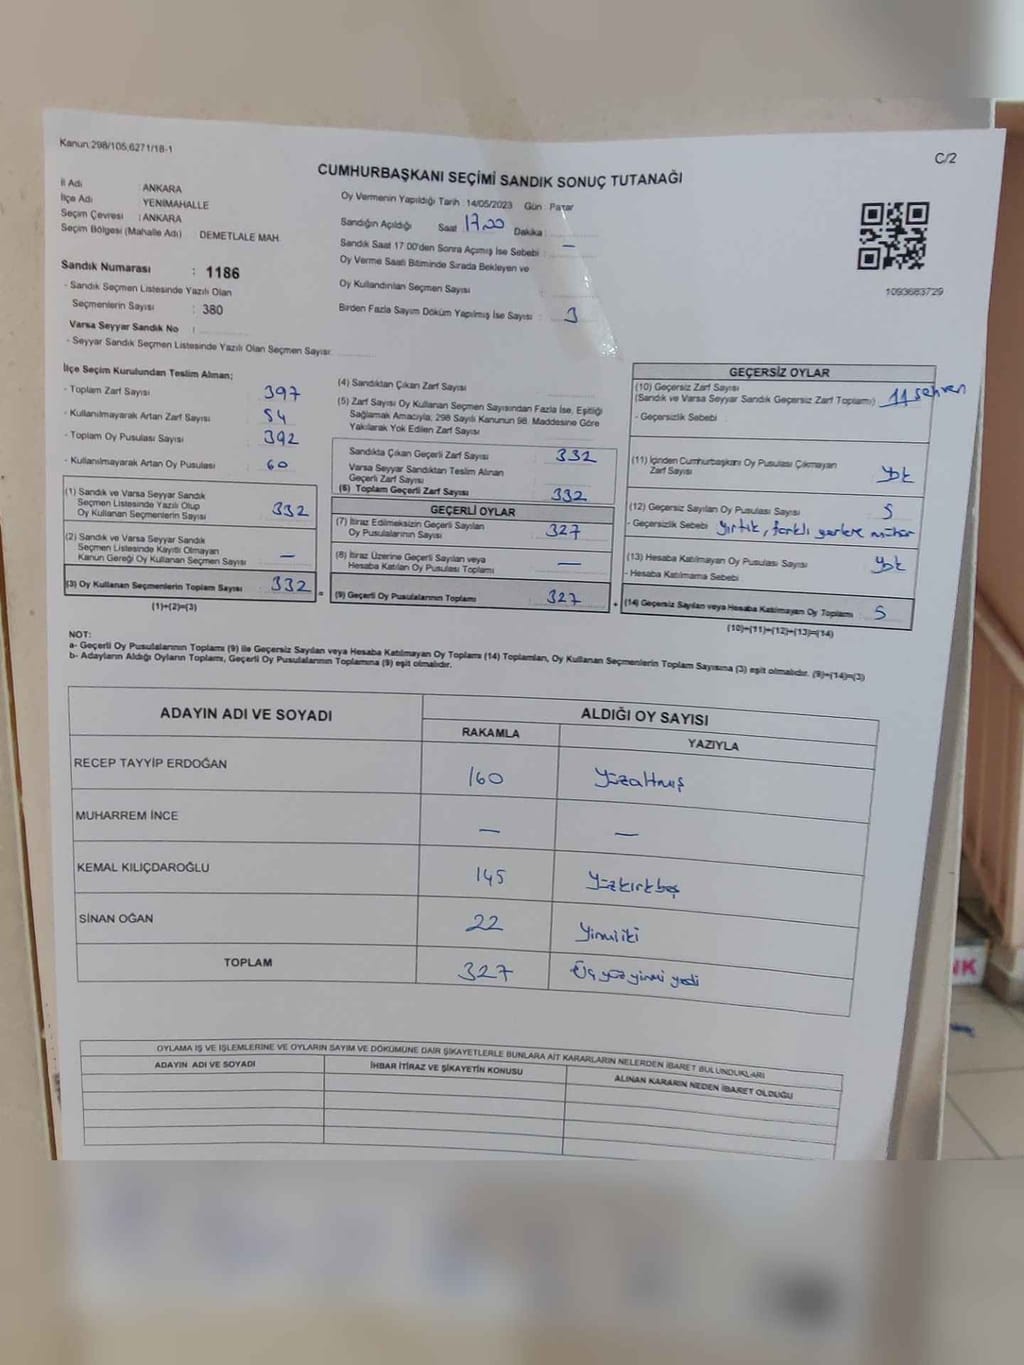 Kanun:298/105,6271/18-1
C/2
CUMHURBAŞKANI SEÇİMİ SANDIK SONUÇ TUTANAĞI
İl Adı : ANKARA
İlçe Adı : YENİMAHALLE
Seçim Çevresi : ANKARA
Seçim Bölgesi (Mahalle Adı) DEMETLALE MAH.
Oy Vermenin Yapıldığı Tarih : 14/05/2023 Gün : Pazar
Sandığın Açıldığı Saat 17.00 Dakika :
Sandık Saat 17.00'den Sonra Açımış İse Sebebi : —
Oy Verme Saati Bitiminde Sırada Bekleyen ve
Oy Kullandırılan Seçmen Sayısı :
Birden Fazla Sayım Döküm Yapılmış İse Sayısı : 3
1093683729
Sandık Numarası : 1186
- Sandık Seçmen Listesinde Yazılı Olan
Seçmenlerin Sayısı : 380
Varsa Seyyar Sandık No :
- Seyyar Sandık Seçmen Listesinde Yazılı Olan Seçmen Sayısı:
İlçe Seçim Kurulundan Teslim Alınan;
- Toplam Zarf Sayısı : 397
- Kullanılmayarak Artan Zarf Sayısı : 54
- Toplam Oy Pusulası Sayısı : 392
- Kullanılmayarak Artan Oy Pusulası : 60
(1) Sandık ve Varsa Seyyar Sandık
Seçmen Listesinde Yazılı Olup
Oy Kullanan Seçmenlerin Sayısı : 332
(2) Sandık ve Varsa Seyyar Sandık
Seçmen Listesinde Kayıtlı Olmayan
Kanun Gereği Oy Kullanan Seçmen Sayısı : —
(3) Oy Kullanan Seçmenlerin Toplam Sayısı : 332
(1)+(2)=(3)
(4) Sandıktan Çıkan Zarf Sayısı :
(5) Zarf Sayısı Oy Kullanan Seçmen Sayısından Fazla İse, Eşitliği
Sağlamak Amacıyla; 298 Sayılı Kanunun 98. Maddesine Göre
Yakılarak Yok Edilen Zarf Sayısı :
Sandıkta Çıkan Geçerli Zarf Sayısı : 332
Varsa Seyyar Sandıktan Teslim Alınan
Geçerli Zarf Sayısı :
(6) Toplam Geçerli Zarf Sayısı : 332
GEÇERLİ OYLAR
(7) İtiraz Edilmeksizin Geçerli Sayılan
Oy Pusulalarının Sayısı : 327
(8) İtiraz Üzerine Geçerli Sayılan veya
Hesaba Katılan Oy Pusulası Toplamı : —
= (9) Geçerli Oy Pusulalarının Toplamı : 327
GEÇERSİZ OYLAR
(10) Geçersiz Zarf Sayısı
(Sandık ve Varsa Seyyar Sandık Geçersiz Zarf Toplamı) : 11 sehven
- Geçersizlik Sebebi :
(11) İçinden Cumhurbaşkanı Oy Pusulası Çıkmayan
Zarf Sayısı : yok
(12) Geçersiz Sayılan Oy Pusulası Sayısı : 5
- Geçersizlik Sebebi : yırtık, farklı yerlere mühür
(13) Hesaba Katılmayan Oy Pusulası Sayısı : yok
- Hesaba Katılmama Sebebi :
+ (14) Geçersiz Sayılan veya Hesaba Katılmayan Oy Toplamı : 5
(10)+(11)+(12)+(13)=(14)
NOT:
a- Geçerli Oy Pusulalarının Toplamı (9) ile Geçersiz Sayılan veya Hesaba Katılmayan Oy Toplamı (14) Toplamları, Oy Kullanan Seçmenlerin Toplam Sayısına (3) eşit olmalıdır. (9)+(14)=(3)
b- Adayların Aldığı Oyların Toplamı, Geçerli Oy Pusulalarının Toplamına (9) eşit olmalıdır.
ADAYIN ADI VE SOYADI
ALDIĞI OY SAYISI
RAKAMLA YAZIYLA
RECEP TAYYİP ERDOĞAN 160 Yüzaltmış
MUHARREM İNCE — —
KEMAL KILIÇDAROĞLU 145 Yüzkırkbeş
SİNAN OĞAN 22 Yirmiiki
TOPLAM 327 Üçyüzyirmi yedi
OYLAMA İŞ VE İŞLEMLERİNE VE OYLARIN SAYIM VE DÖKÜMÜNE DAİR ŞİKAYETLERLE BUNLARA AİT KARARLARIN NELERDEN İBARET BULUNDUKLARI
ADAYIN ADI VE SOYADI İHBAR İTİRAZ VE ŞİKAYETİN KONUSU ALINAN KARARIN NEDEN İBARET OLDUĞU